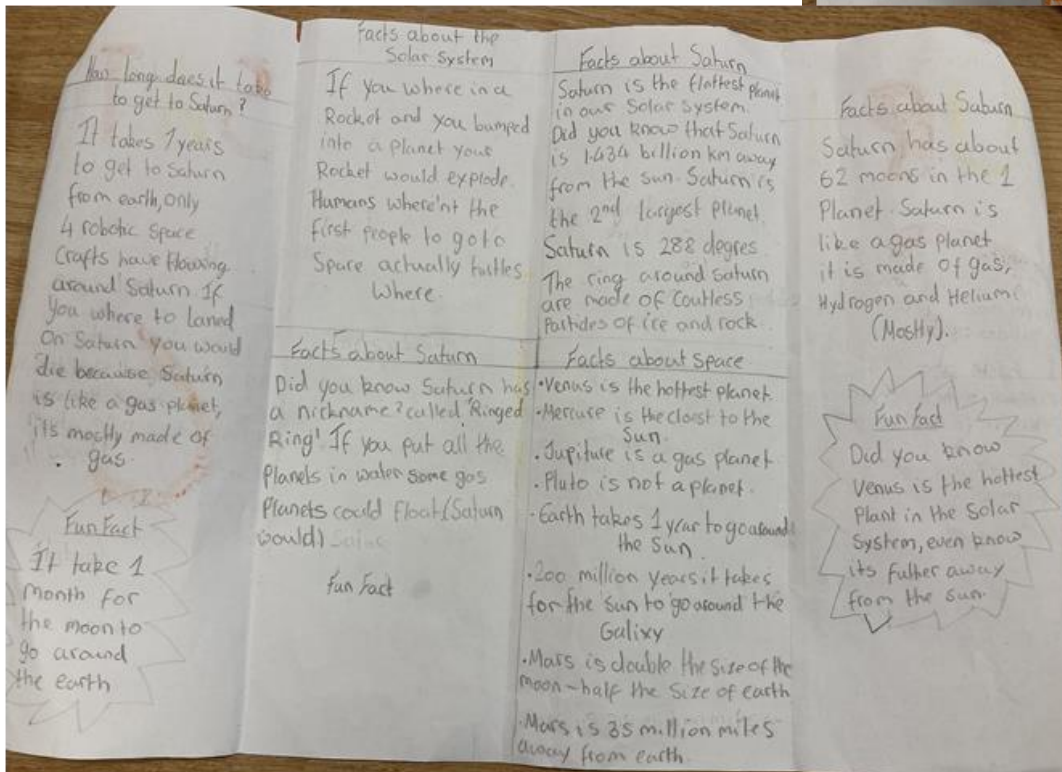 How long does it take
to get to Saturn?
It takes 7 years
to get to Saturn
from earth, only
4 robotic space
crafts have flowing
around Saturn. If
you where to laned
on Saturn you would
die because, Saturn
is like a gas planet,
it's mostly made of
gas.
Fun Fact
It take 1
month for
the moon to
go around
the earth
Facts about the
Solar System
If you where in a
Rocket and you bumped
into a planet your
Rocket would explode.
Humans where'nt the
first people to go to
Space actually turtles
where.
Facts about Saturn
Did you know Saturn has
a nickname? called 'Ringed
Ring'. If you put all the
Planets in water some gas
Planets could float (Saturn
would)
Fun Fact
Facts about Saturn
Saturn is the flattest planet
in our Solar System.
Did you know that Saturn
is 1.434 billion km away
from the sun. Saturn is
the 2nd largest planet
Saturn is 288 degres
The ring around saturn
are made of Coutless
Partides of ice and rock.
Facts about Space
•Venus is the hottest planet.
•Mercure is the closst to the
Sun.
•Jupiture is a gas planet
•Pluto is not a planet.
•Earth takes 1 year to go around
the sun.
•200 million years it takes
for the sun to go around the
Galixy
•Mars is double the size of the
moon-half the size of earth
•Mars is 35 million miles
away from earth.
Facts about Saturn
Saturn has about
62 moons in the 1
Planet. Saturn is
like a gas planet
it is made of gas,
Hydrogen and Helium.
(Mostly).
Fun Fact
Did you know
Venus is the hottest
Plant in the Solar
System, even know
its futher away
from the sun.